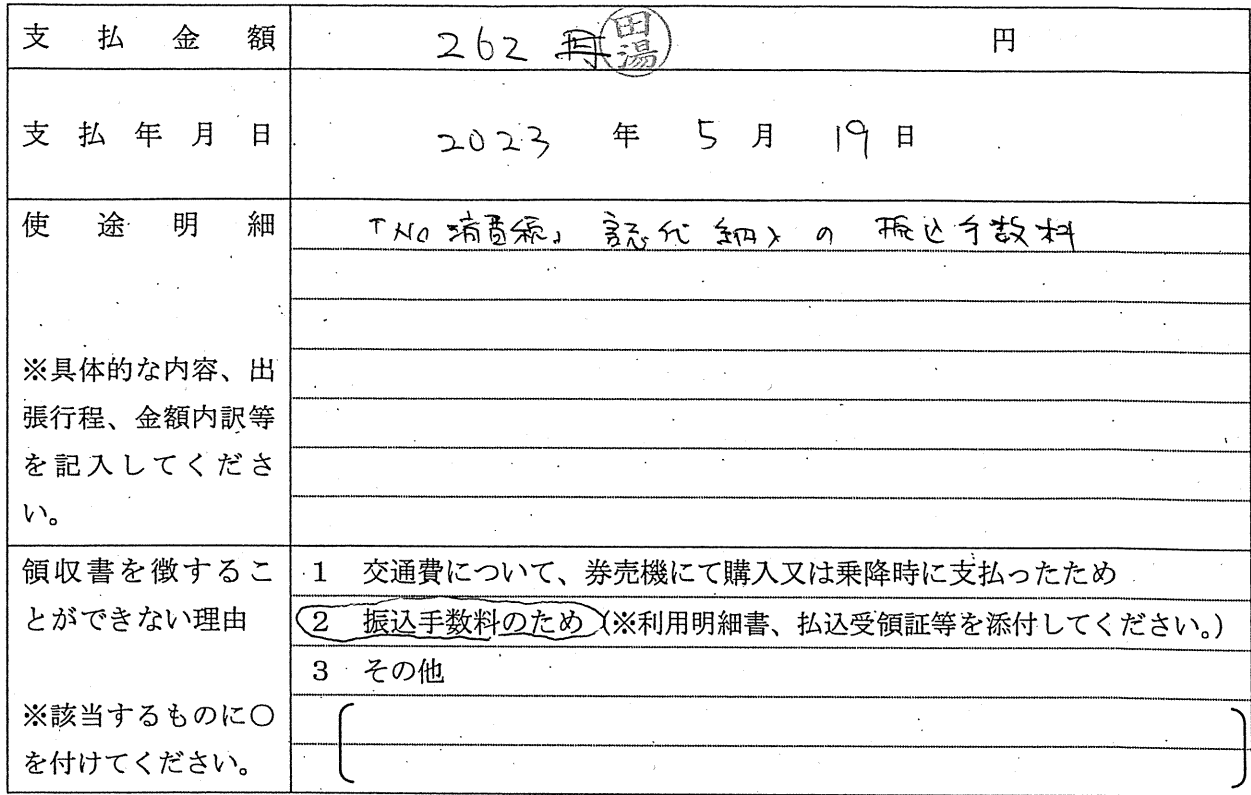 支払金額 262 円 田湯 円
支払年月日 2023 年 5 月 19 日
使途明細 「No 消費税」誌代納入の振込手数料
※具体的な内容、出
張行程、金額内訳等
を記入してくださ
い。
領収書を徴するこ
とができない理由
※該当するものに〇
を付けてください。
1 交通費について、券売機にて購入又は乗降時に支払ったため
2 振込手数料のため(※利用明細書、払込受領証等を添付してください。)
3 その他